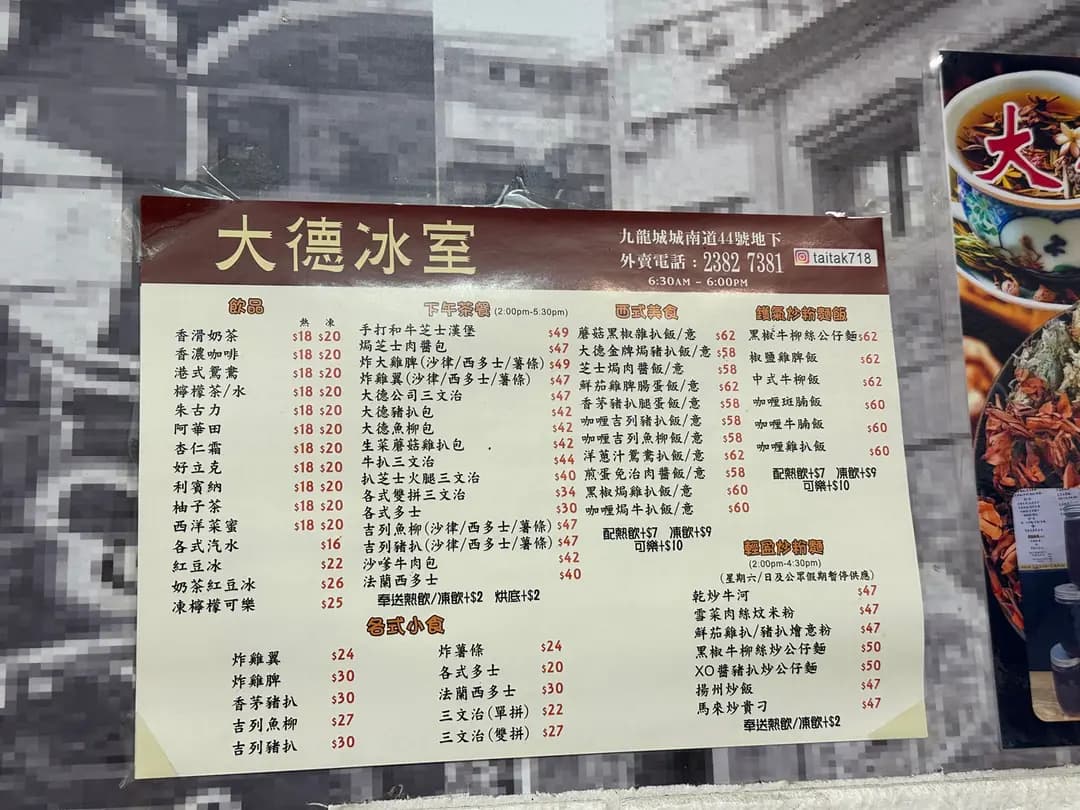 大德冰室
九龍城城南道44號地下
外賣電話：2382 7381
6:30AM - 6:00PM
taitak718
飲品
熱 凍
香滑奶茶 $18 $20
香濃咖啡 $18 $20
港式鴛鴦 $18 $20
檸檬茶/水 $18 $20
朱古力 $18 $20
阿華田 $18 $20
杏仁霜 $18 $20
好立克 $18 $20
利賓納 $18 $20
柚子茶 $18 $20
西洋菜蜜 $18 $20
各式汽水 $16
紅豆冰 $22
奶茶紅豆冰 $26
凍檸檬可樂 $25
下午茶餐 (2:00pm-5:30pm)
手打和牛芝士漢堡 $49
焗芝士肉醬包 $47
炸大雞脾(沙律/西多士/薯條) $49
炸雞翼(沙律/西多士/薯條) $47
大德公司三文治 $47
大德豬扒包 $42
大德魚柳包 $42
生菜蘑菇雞扒包 $42
牛扒三文治 $44
扒芝士火腿三文治 $40
各式雙拼三文治 $34
各式多士 $30
吉列魚柳(沙律/西多士/薯條) $47
吉列豬扒(沙律/西多士/薯條) $47
沙爹牛肉包 $42
法蘭西多士 $40
奉送熱飲/凍飲+$2 烘底+$2
西式美食
蘑菇黑椒雜扒飯/意 $62
大德金牌焗豬扒飯/意 $58
芝士焗肉醬飯/意 $58
鮮茄雞脾腸蛋飯/意 $62
香茅豬扒腿蛋飯/意 $58
咖喱吉列豬扒飯/意 $58
咖喱吉列魚柳飯/意 $58
洋蔥汁鴛鴦扒飯/意 $62
煎蛋免治肉醬飯/意 $58
黑椒焗雞扒飯/意 $60
咖喱焗牛扒飯/意 $60
配熱飲+$7 凍飲+$9
可樂+$10
鑊氣炒粉麵飯
黑椒牛柳絲公仔麵 $62
椒鹽雞脾飯 $62
中式牛柳飯 $62
咖喱斑腩飯 $60
咖喱牛腩飯 $60
咖喱雞扒飯 $60
配熱飲+$7 凍飲+$9
可樂+$10
輕盈炒粉麵
(2:00pm-4:30pm)
(星期六/日及公眾假期暫停供應)
乾炒牛河 $47
雪菜肉絲炆米粉 $47
鮮茄雞扒/豬扒燴意粉 $47
黑椒牛柳絲炒公仔麵 $50
XO醬豬扒炒公仔麵 $50
揚州炒飯 $47
馬來炒貴刁 $47
奉送熱飲/凍飲+$2
各式小食
炸雞翼 $24
炸雞脾 $30
香茅豬扒 $30
吉列魚柳 $27
吉列豬扒 $30
炸薯條 $24
各式多士 $20
法蘭西多士 $30
三文治(單拼) $22
三文治(雙拼) $27
大